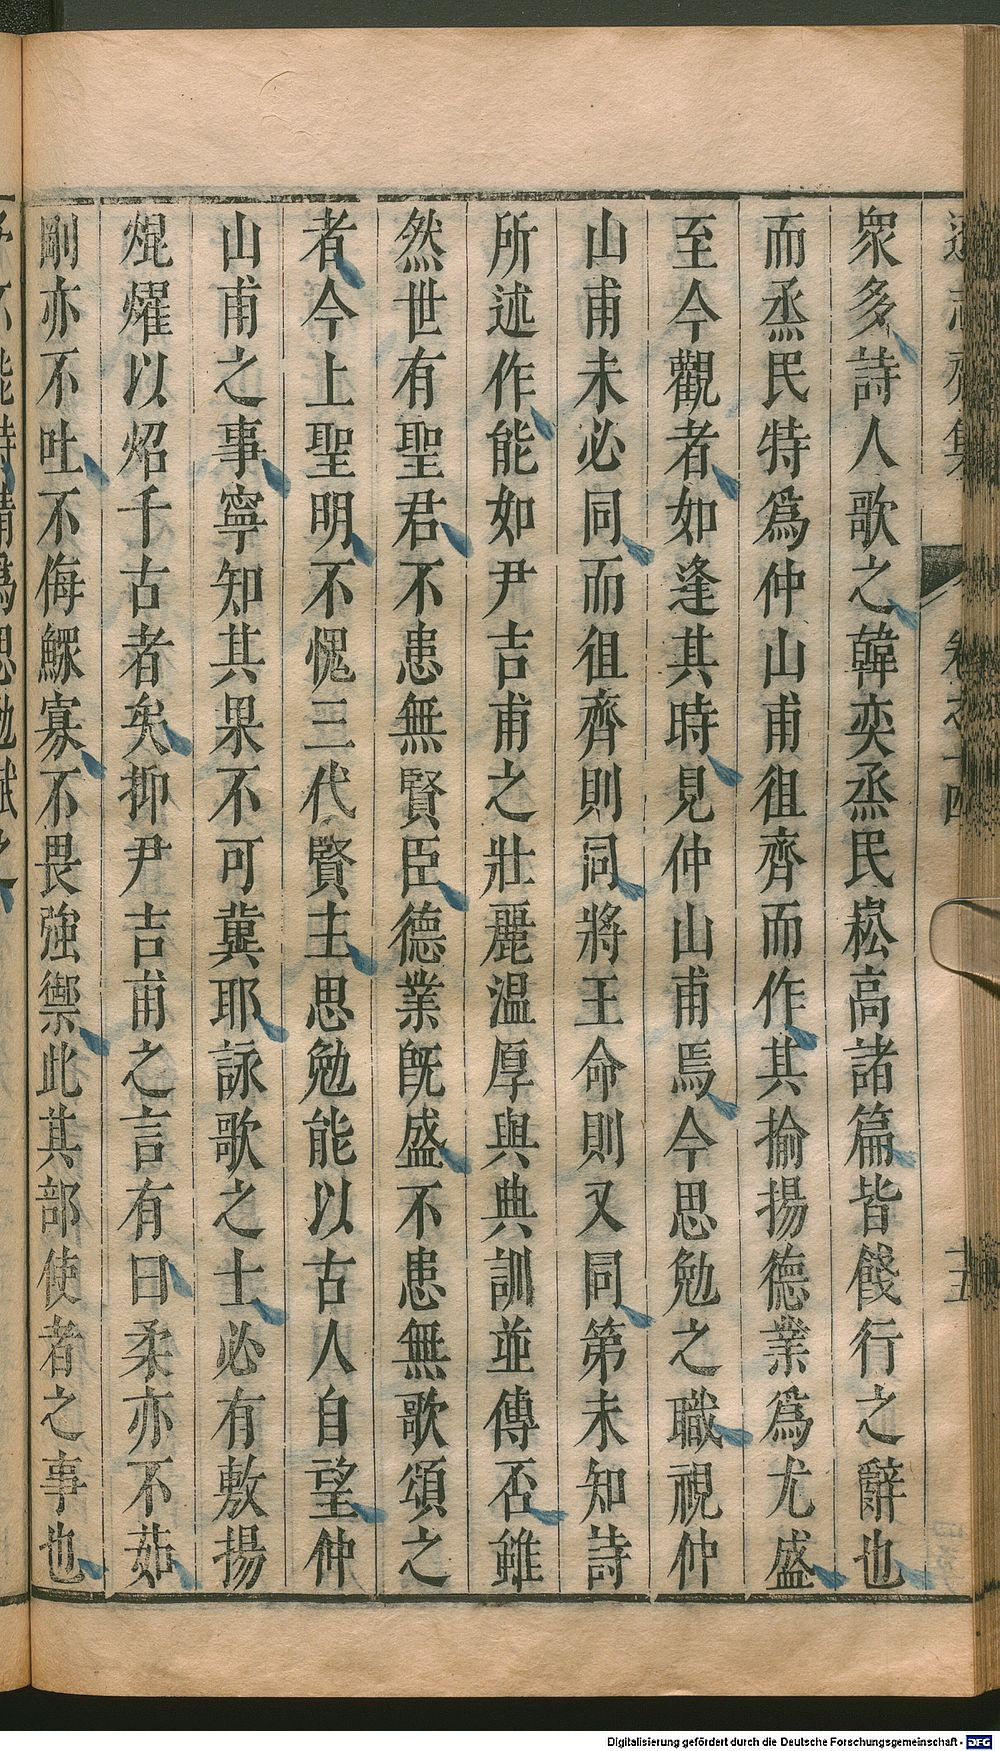 遜志齋集 卷之十四 十五
衆多詩人歌之韓奕烝民崧高諸篇皆餞行之辭也
而烝民特爲仲山甫徂齊而作其揄揚德業爲尤盛
至今觀者如逢其時見仲山甫焉今思勉之職視仲
山甫未必同而徂齊則同將王命則又同第未知詩
所述作能如尹吉甫之壯麗溫厚與典訓並傳否雖
然世有聖君不患無賢臣德業旣盛不患無歌頌之
者今上聖明不愧三代賢主思勉能以古人自望仲
山甫之事寧知其果不可冀耶詠歌之士必有敷揚
焜燿以炤千古者矣抑尹吉甫之言有曰柔亦不茹
剛亦不吐不侮鰥寡不畏強禦此其部使者之事也
Digitalisierung gefördert durch die Deutsche Forschungsgemeinschaft - DFG